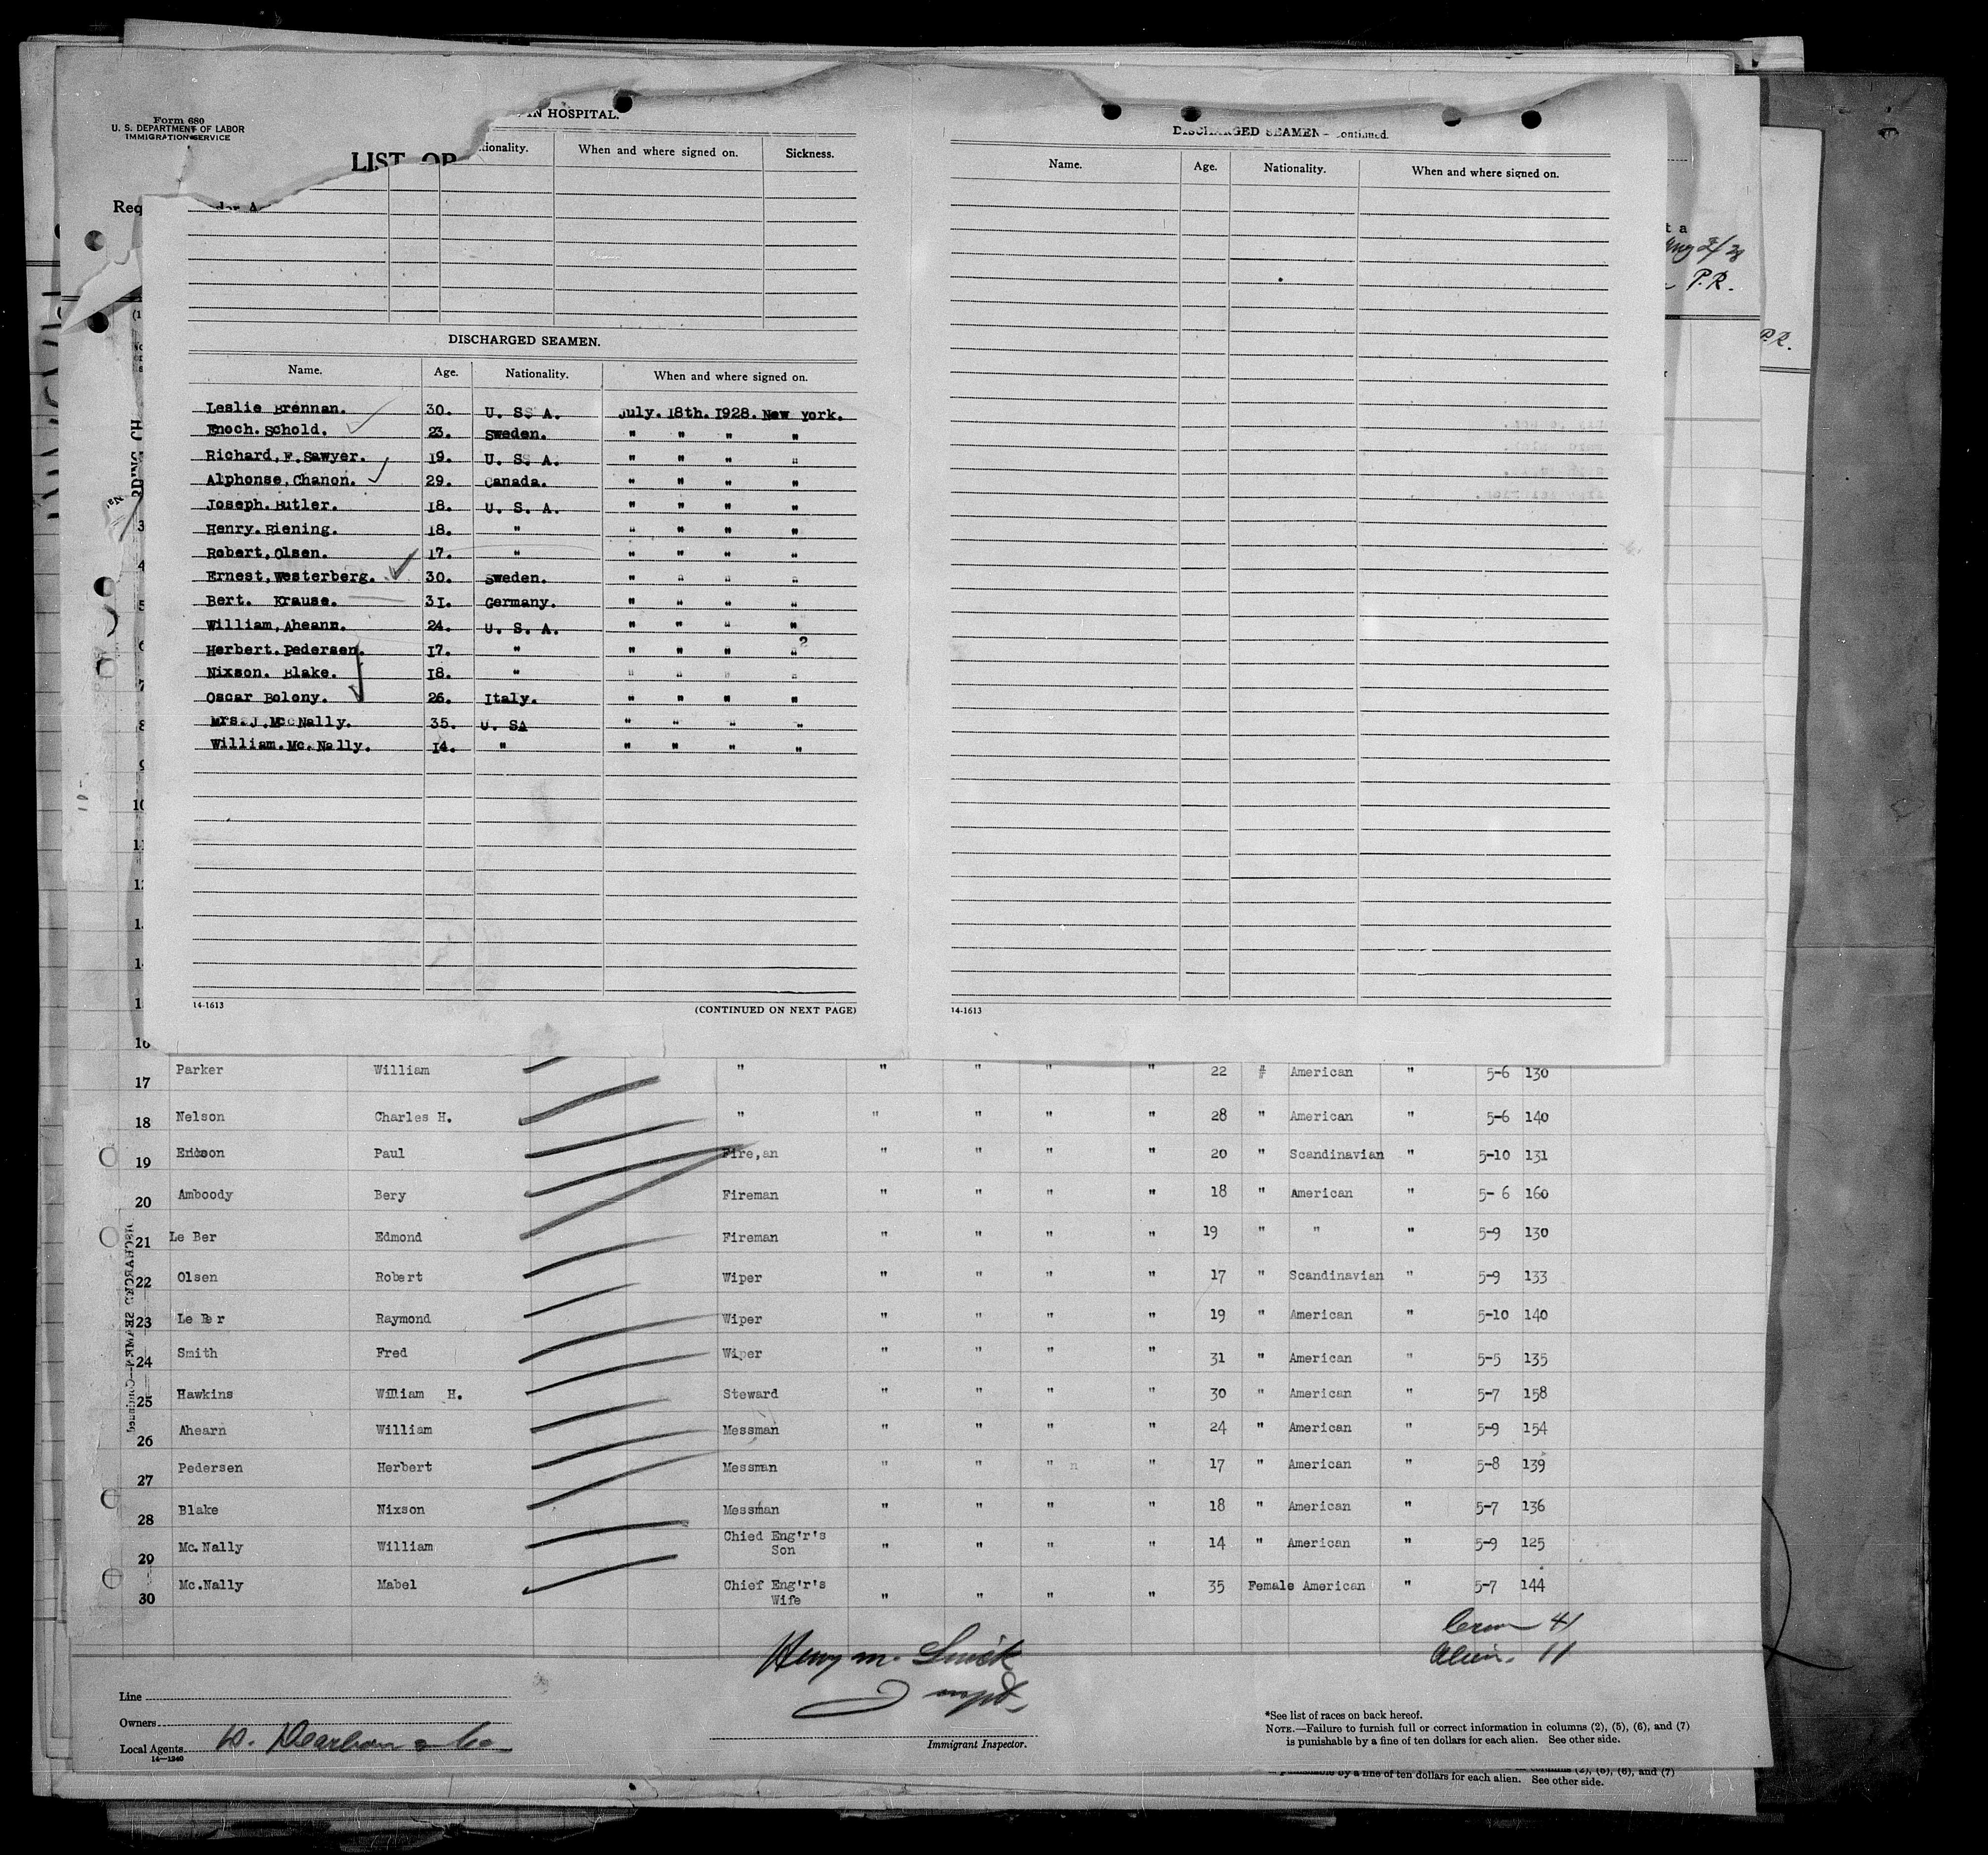 Form 680
U. S. DEPARTMENT OF LABOR
IMMIGRATION SERVICE
LIST OR
Req
IN HOSPITAL.
tionality. When and where signed on. Sickness.
DISCHARGED SEAMEN.
Name. Age. Nationality. When and where signed on.
Leslie Brennan. 30. U. S. A. July. 18th. 1928. New York.
Enoch. Schold. 23. Sweden. " " " "
Richard, F. Sawyer. 19. U. S. A. " " " "
Alphonse, Chanon. 29. Canada. " " " "
Joseph. Butler. 18. U. S. A. " " " "
Henry. Riening. 18. " " " " "
Robert, Olsen. 17. " " " " "
Ernest, Westerberg. 30. Sweden. " " " "
Bert. Krause. 31. Germany. " " " "
William, Ahearn. 24. U. S. A. " " " "
Herbert. Pedersen. 17. " " " " " ?
Nixson. Blake. 18. " " " " "
Oscar Bolony. 26. Italy. " " " "
Mrs. J. Mc Nally. 35. U. SA " " " "
William. Mc. Nally. 14. " " " " "
14-1613 (CONTINUED ON NEXT PAGE)
DISCHARGED SEAMEN—Continued.
Name. Age. Nationality. When and where signed on.
14-1613
t a
P.R.
P.R.
16
17 Parker William " " " " " 22 # American " 5-6 130
18 Nelson Charles H. " " " " " 28 " American " 5-6 140
19 Ericson Paul Fire,an " " " " 20 " Scandinavian " 5-10 131
20 Amboody Bery Fireman " " " " 18 " American " 5- 6 160
21 Le Ber Edmond Fireman " " " " 19 " " " 5-9 130
22 Olsen Robert Wiper " " " " 17 " Scandinavian " 5-9 133
23 Le Ber Raymond Wiper " " " " 19 " American " 5-10 140
24 Smith Fred Wiper " " " " 31 " American " 5-5 135
25 Hawkins William H. Steward " " " " 30 " American " 5-7 158
26 Ahearn William Messman " " " " 24 " American " 5-9 154
27 Pedersen Herbert Messman " " " n " 17 " American " 5-8 139
28 Blake Nixson Messman " " " " 18 " American " 5-7 136
29 Mc.Nally William Chied Eng'r's Son " " " " 14 " American " 5-9 125
30 Mc.Nally Mabel Chief Eng'r's Wife " " " " 35 Female American " 5-7 144
Crew 41
Alien. 11
Henry M.
Line
Owners
Local Agents
14-1240
Immigrant Inspector.
*See list of races on back hereof.
NOTE.—Failure to furnish full or correct information in columns (2), (5), (6), and (7)
is punishable by a fine of ten dollars for each alien. See other side.
punishable by a fine of ten dollars for each alien. See other side.
DISCHARGED SEAMEN—Continued